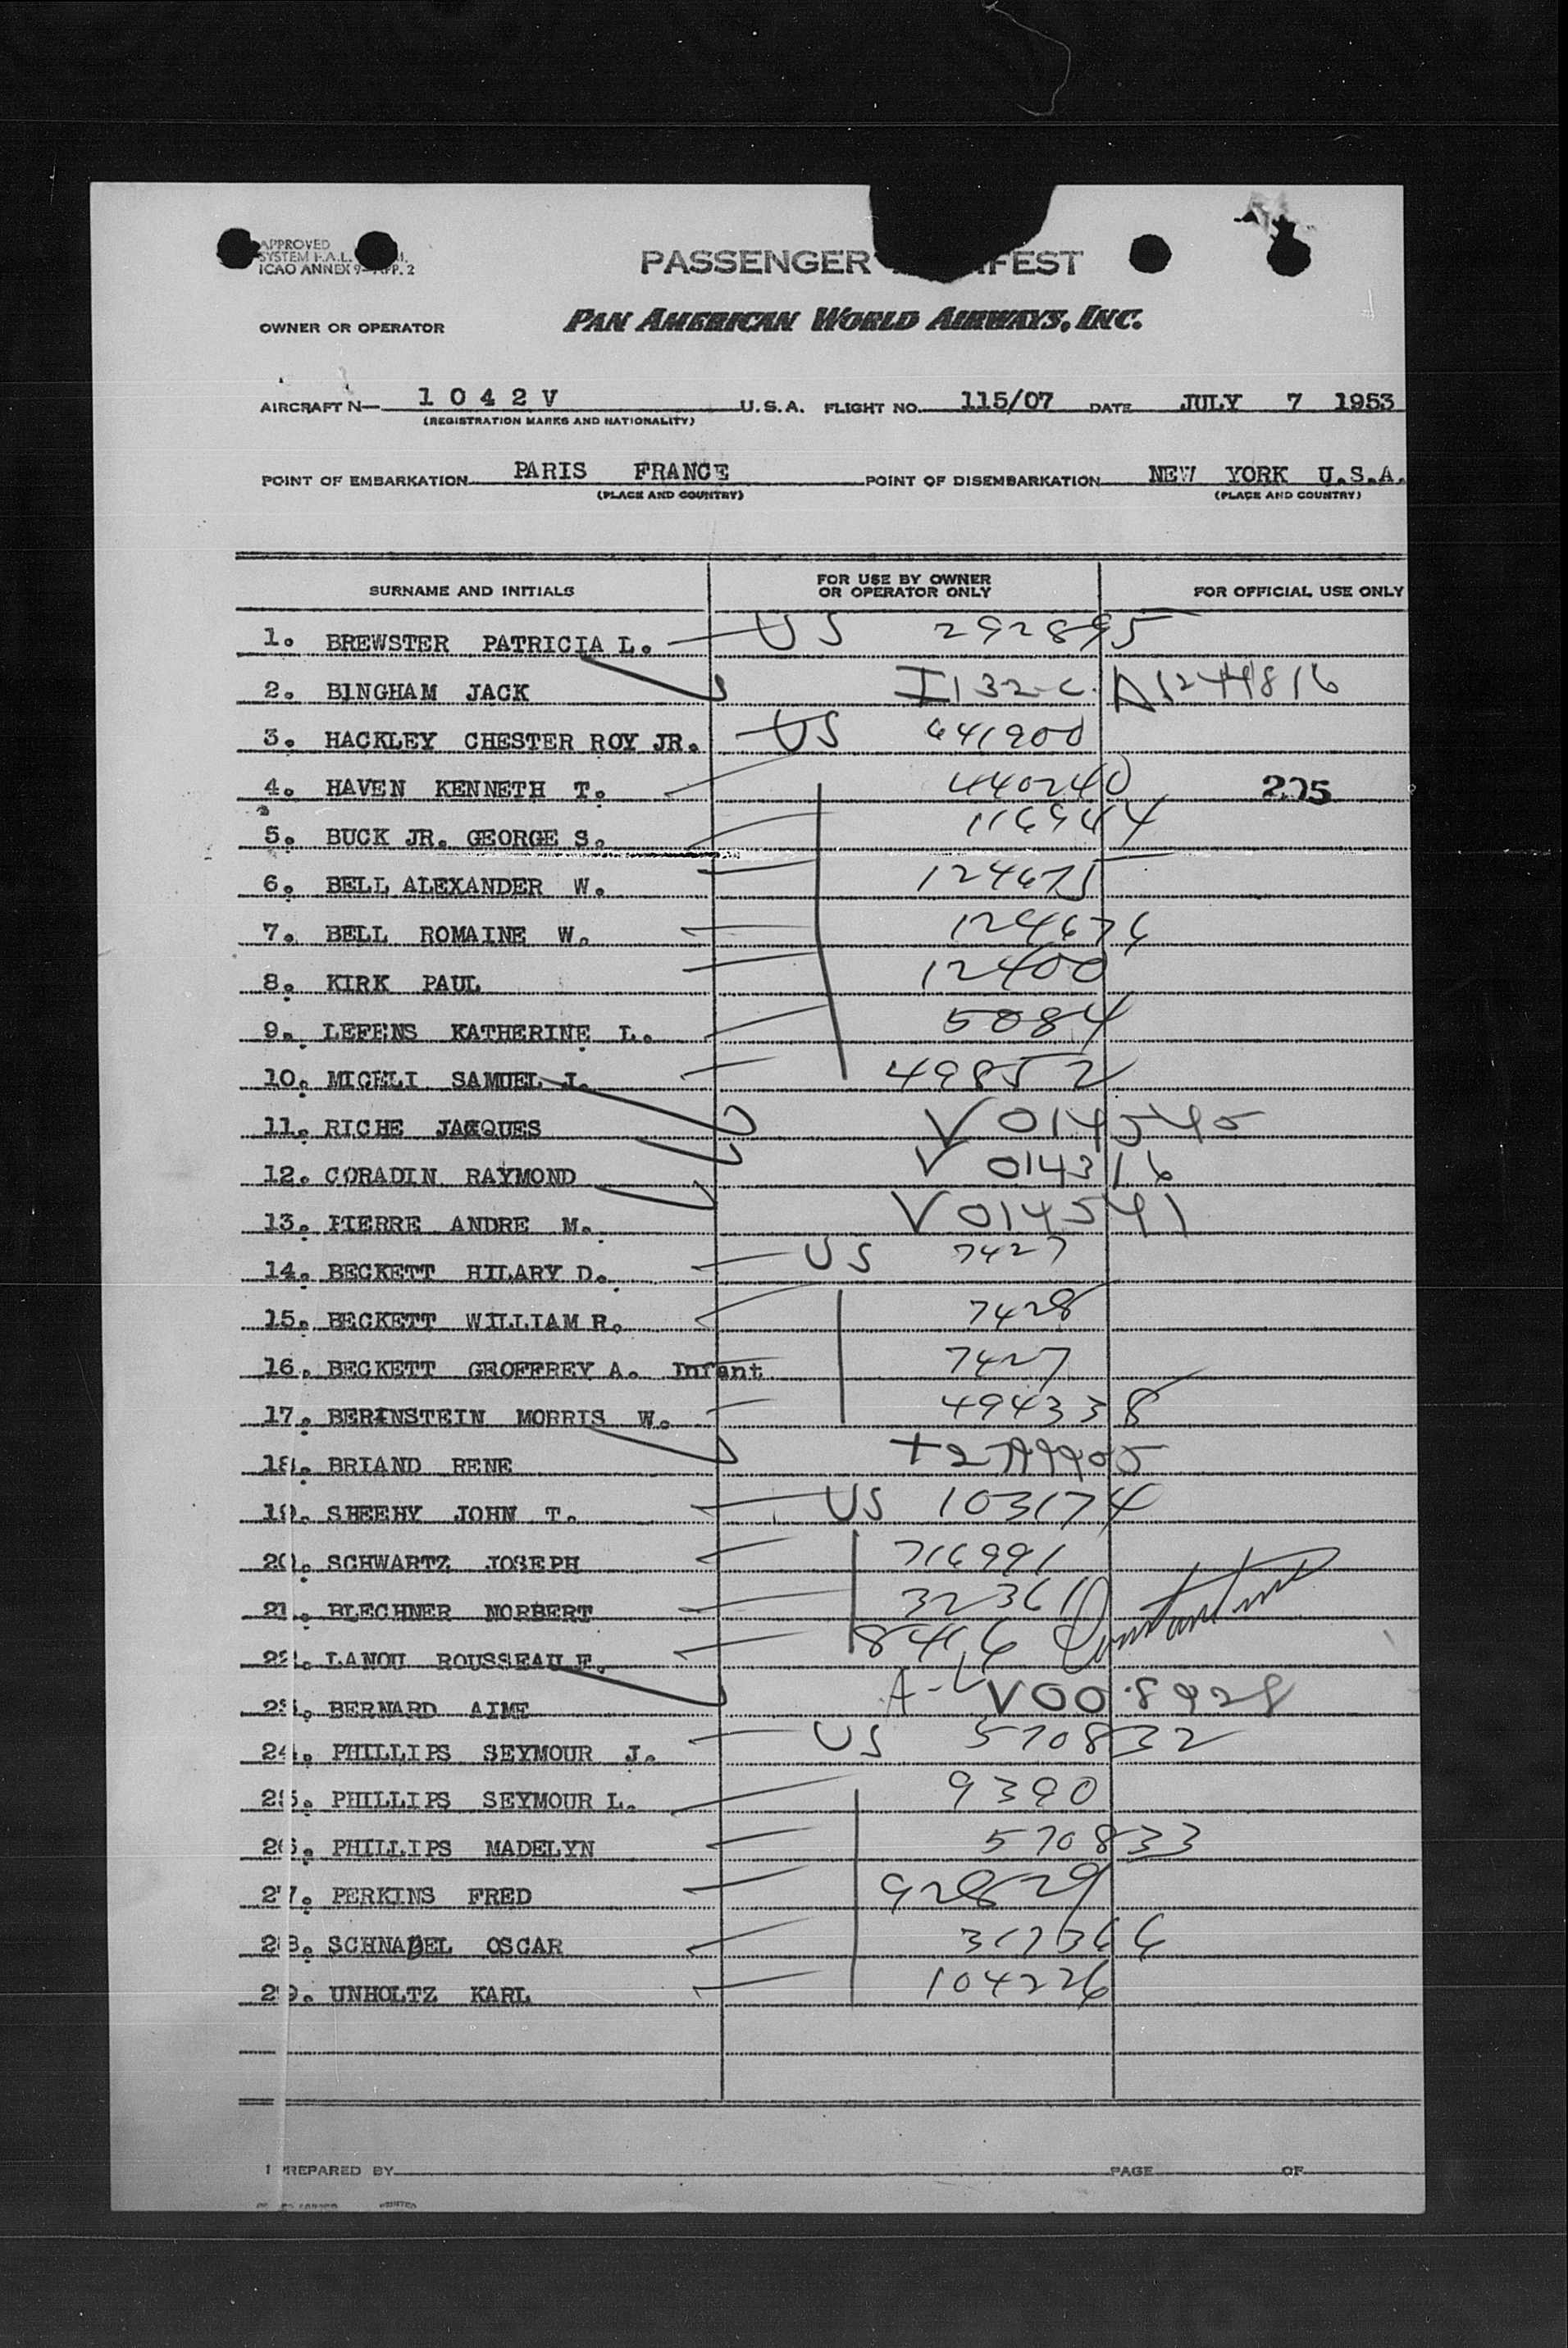 APPROVED
SYSTEM F.A.L.
ICAO ANNEX 9— APP. 2
PASSENGER
OWNER OR OPERATOR PAN AMERICAN WORLD AIRWAYS, INC.
AIRCRAFT N— 1 0 4 2 V U.S.A. FLIGHT NO. 115/07 DATE JULY 7 1953
(REGISTRATION MARKS AND NATIONALITY)
POINT OF EMBARKATION PARIS FRANCE POINT OF DISEMBARKATION NEW YORK U.S.A.
(PLACE AND COUNTRY) (PLACE AND COUNTRY)
SURNAME AND INITIALS FOR USE BY OWNER OR OPERATOR ONLY FOR OFFICIAL USE ONLY
1. BREWSTER PATRICIA L. US 292895
2. BINGHAM JACK I132-C.
3. HACKLEY CHESTER ROY JR. US 641900
4. HAVEN KENNETH T. 440240 205
5. BUCK JR. GEORGE S. 116944
6. BELL ALEXANDER W. 124675
7. BELL ROMAINE W. 124676
8. KIRK PAUL 12400
9. LEFENS KATHERINE L. 5084
10. MICELI SAMUEL I. 49852
11. RICHE JACQUES V 014545
12. CORADIN RAYMOND V 014316
13. PIERRE ANDRE M. V 014541
14. BECKETT HILARY D. US 7427
15. BECKETT WILLIAM R. 7428
16. BECKETT GEOFFREY A. Infant 7427
17. BERINSTEIN MORRIS W. 494338
18. BRIAND RENE
19. SHEEHY JOHN T. US 103174
20. SCHWARTZ JOSEPH 716991
21. BLECHNER NORBERT 32361
22. LANOU ROUSSEAU F. 8416
23. BERNARD AIME V008928
24. PHILLIPS SEYMOUR J. US 570832
25. PHILLIPS SEYMOUR L. 9390
26. PHILLIPS MADELYN 570833
27. PERKINS FRED 928829
28. SCHNABEL OSCAR 317366
29. UNHOLTZ KARL 104226
PREPARED BY PAGE OF